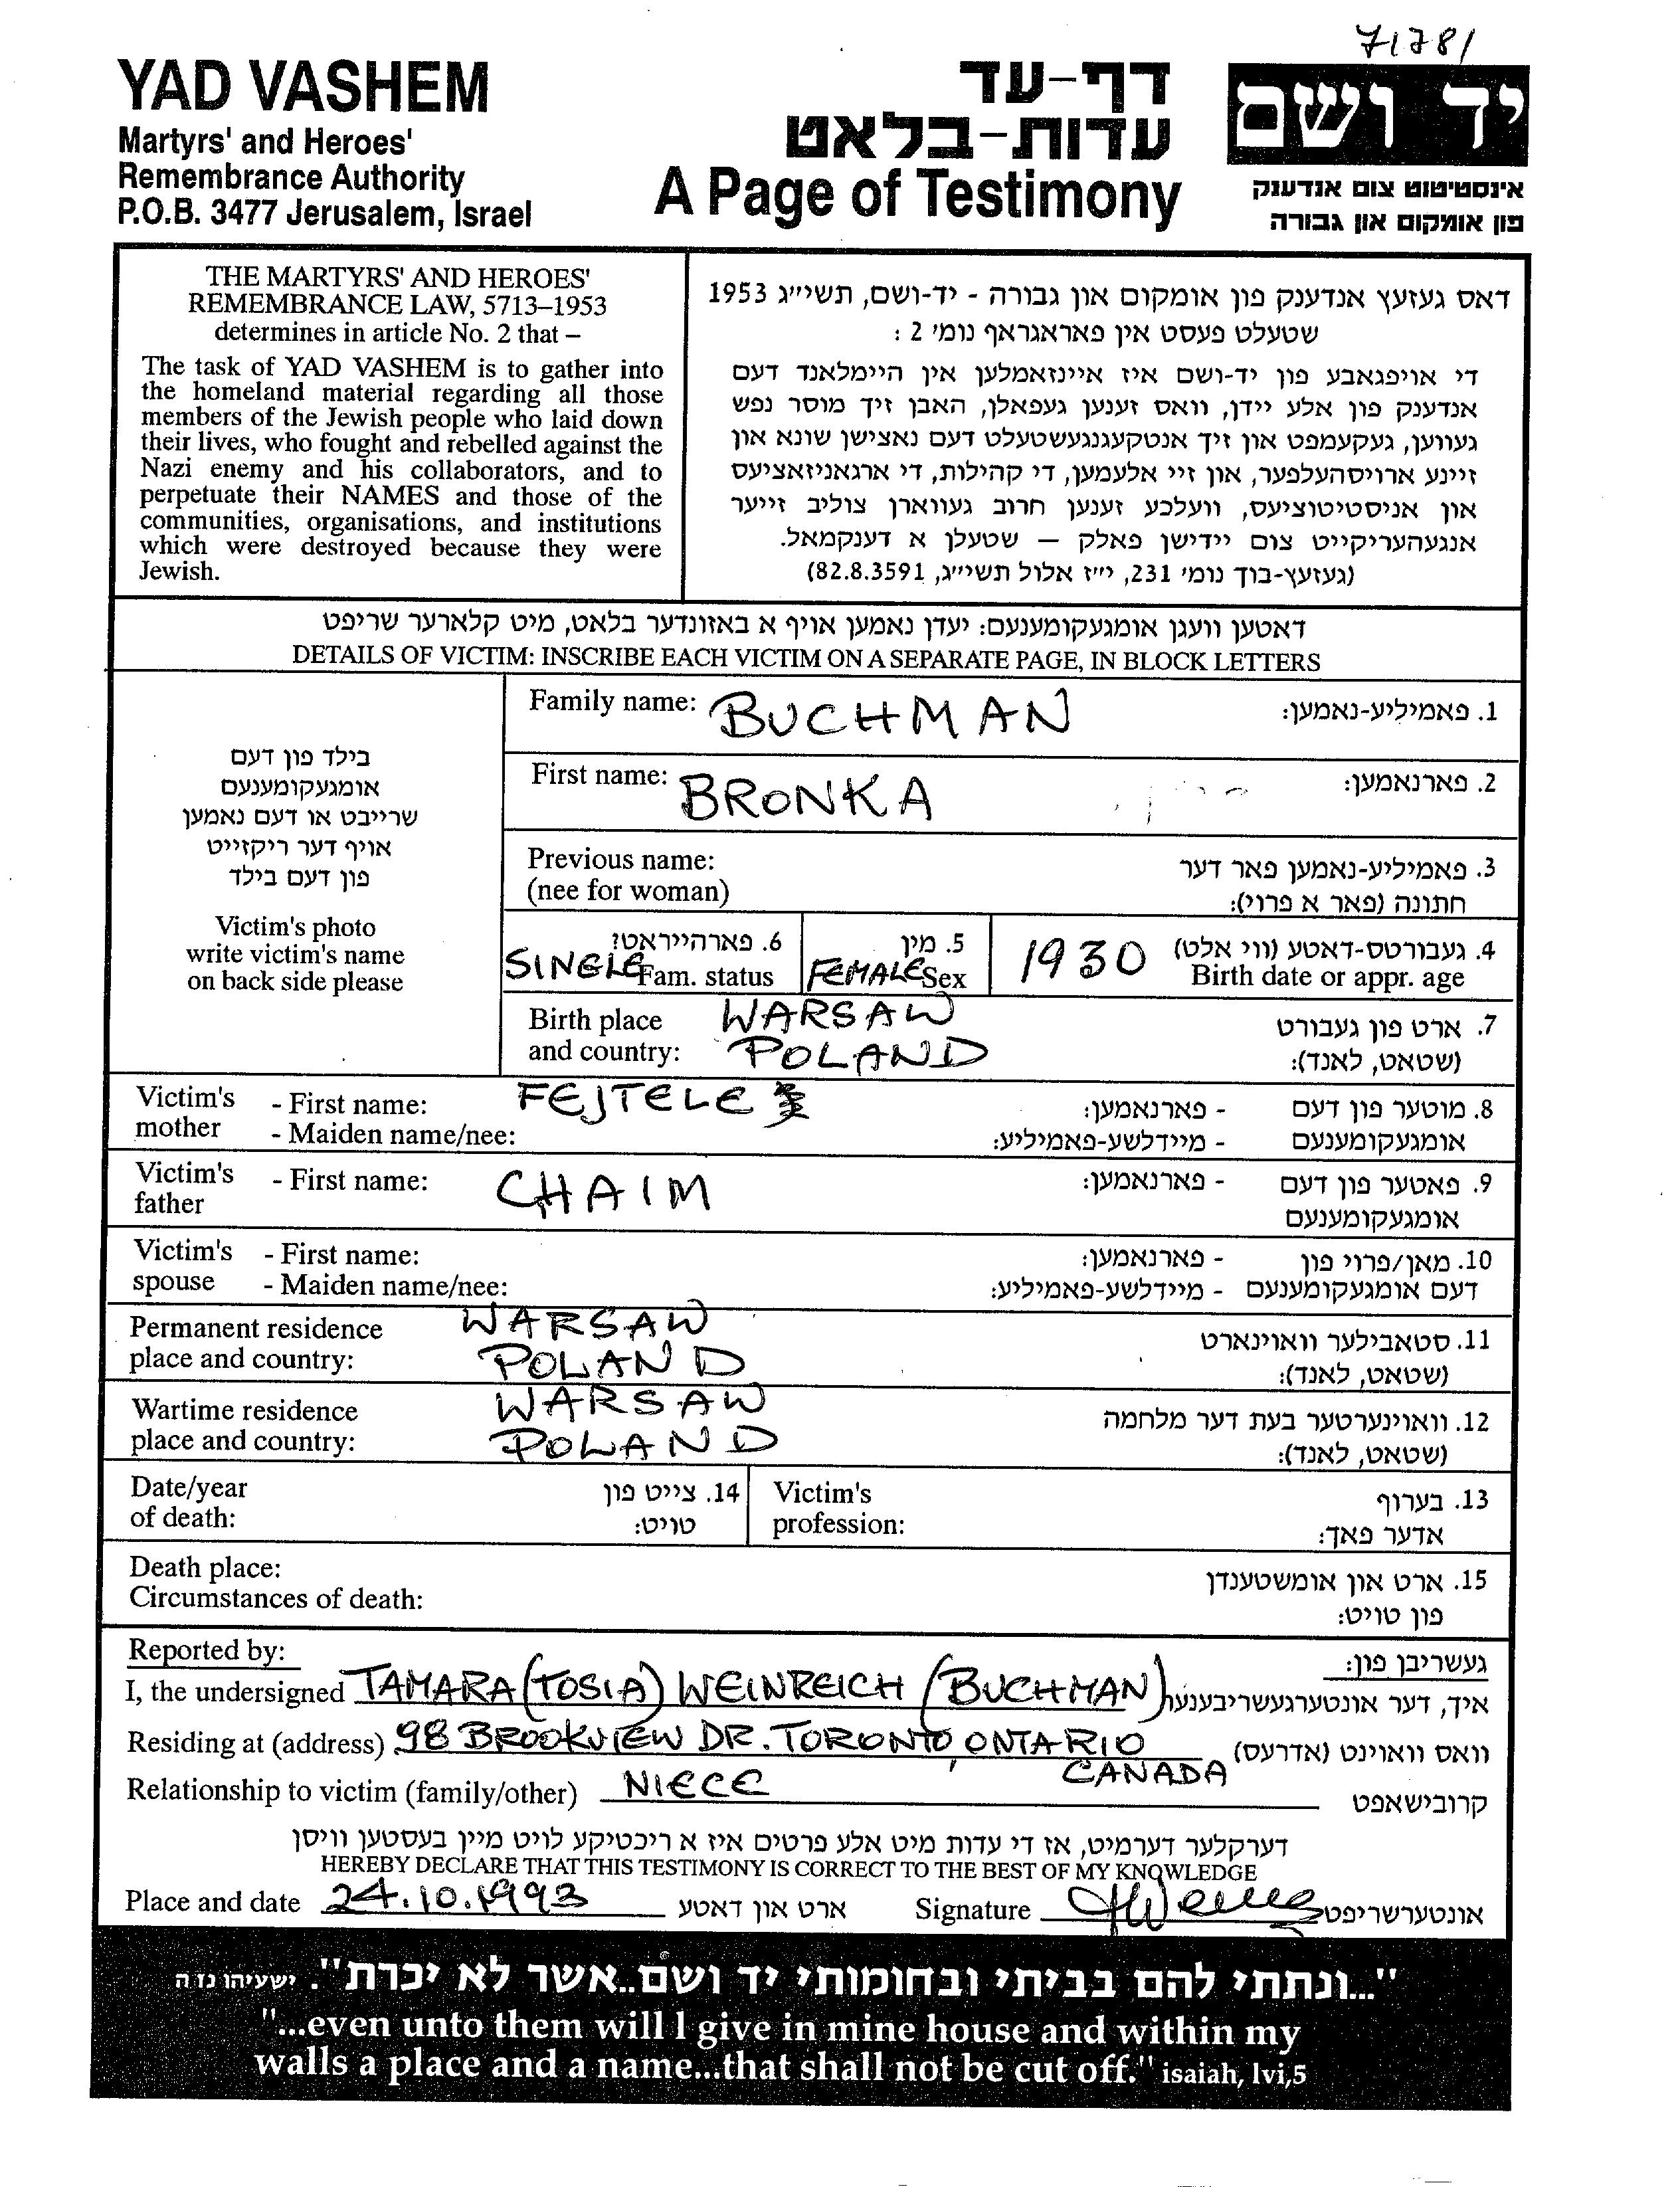 71781
YAD VASHEM
Martyrs' and Heroes'
Remembrance Authority
P.O.B. 3477 Jerusalem, Israel
דף-עד
עדות-בלאט
A Page of Testimony
יד ושם
אינסטיטוט צום אנדענק
פון אומקום און גבורה
THE MARTYRS' AND HEROES'
REMEMBRANCE LAW, 5713–1953
determines in article No. 2 that –
The task of YAD VASHEM is to gather into
the homeland material regarding all those
members of the Jewish people who laid down
their lives, who fought and rebelled against the
Nazi enemy and his collaborators, and to
perpetuate their NAMES and those of the
communities, organisations, and institutions
which were destroyed because they were
Jewish.
דאס געזעץ אנדענק פון אומקום און גבורה - יד-ושם, תשי״ג 1953
שטעלט פעסט אין פאראגראף נומ׳ 2 :
די אויפגאבע פון יד-ושם איז איינזאמלען אין היימלאנד דעם
אנדענק פון אלע יידן, וואס זענען געפאלן, האבן זיך מוסר נפש
געווען, געקעמפט און זיך אנטקעגנגעשטעלט דעם נאצישן שונא און
זיינע ארויסהעלפער, און זיי אלעמען, די קהילות, די ארגאניזאציעס
און אניסטיטוציעס, וועלכע זענען חרוב געווארן צוליב זייער
אנגעהעריקייט צום יידישן פאלק — שטעלן א דענקמאל.
(געזעץ-בוך נומ׳ 231, י״ז אלול תשי״ג, 82.8.3591)
דאטען וועגן אומגעקומענעם: יעדן נאמען אויף א באזונדער בלאט, מיט קלארער שריפט
DETAILS OF VICTIM: INSCRIBE EACH VICTIM ON A SEPARATE PAGE, IN BLOCK LETTERS
בילד פון דעם
אומגעקומענעם
שרייבט או דעם נאמען
אויף דער ריקזייט
פון דעם בילד
Victim's photo
write victim's name
on back side please
Family name: BUCHMAN 1. פאמיליע-נאמען:
First name: BRONKA 2. פארנאמען:
Previous name: 3. פאמיליע-נאמען פאר דער
(nee for woman) חתונה (פאר א פרוי):
6. פארהייראט? 5. מין 4. געבורטס-דאטע (ווי אלט)
SINGLE Fam. status FEMALE Sex 1930 Birth date or appr. age
Birth place WARSAW 7. ארט פון געבורט
and country: POLAND (שטאט, לאנד):
Victim's - First name: FEJTELE - פארנאמען: 8. מוטער פון דעם
mother - Maiden name/nee: - מיידלשע-פאמיליע: אומגעקומענעם
Victim's - First name: CHAIM - פארנאמען: 9. פאטער פון דעם
father אומגעקומענעם
Victim's - First name: - פארנאמען: 10. מאן/פרוי פון
spouse - Maiden name/nee: - מיידלשע-פאמיליע: דעם אומגעקומענעם
Permanent residence WARSAW 11. סטאבילער וואוינארט
place and country: POLAND (שטאט, לאנד):
Wartime residence WARSAW 12. וואוינערטער בעת דער מלחמה
place and country: POLAND (שטאט, לאנד):
Date/year 14. צייט פון Victim's 13. בערוף
of death: טויט: profession: אדער פאך:
Death place: 15. ארט און אומשטענדן
Circumstances of death: פון טויט:
Reported by: געשריבן פון:
I, the undersigned TAMARA (TOSIA) WEINREICH (BUCHMAN) איך, דער אונטערגעשריבענער
Residing at (address) 98 BROOKVIEW DR. TORONTO, ONTARIO וואס וואוינט (אדרעס)
CANADA
Relationship to victim (family/other) NIECE קרובישאפט
דערקלער דערמיט, אז די עדות מיט אלע פרטים איז א ריכטיקע לויט מיין בעסטען וויסן
HEREBY DECLARE THAT THIS TESTIMONY IS CORRECT TO THE BEST OF MY KNOWLEDGE
Place and date 24.10.1993 ארט און דאטע Signature אונטערשריפט
"...ונתתי להם בביתי ובחומותי יד ושם..אשר לא יכרת". ישעיהו נו ה
"...even unto them will I give in mine house and within my
walls a place and a name...that shall not be cut off." isaiah, lvi,5